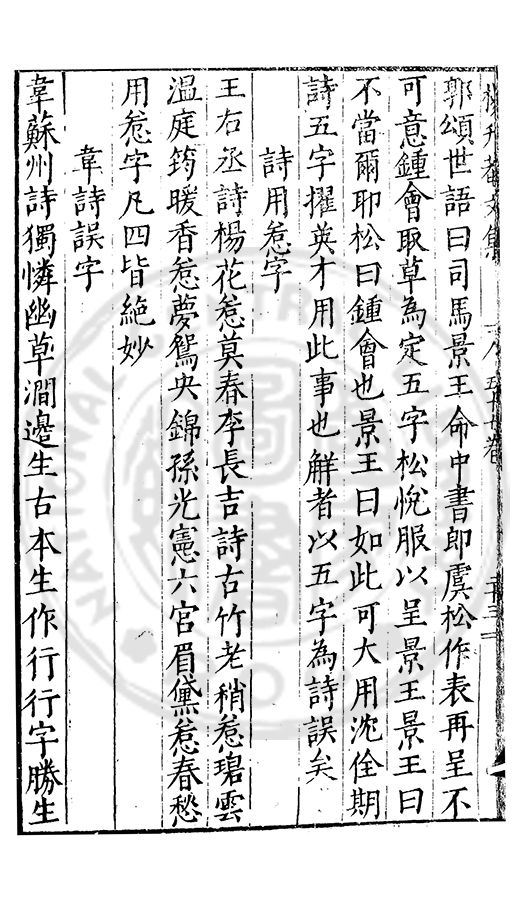 郭頌世語曰司馬景王命中書郎虞松作表再呈不
可意鍾會取草為定五字松悅服以呈景王景王曰
不當爾耶松曰鍾會也景王曰如此可大用沈佺期
詩五字擢英才用此事也解者以五字為詩誤矣
詩用惹字
王右丞詩楊花惹莫春李長吉詩古竹老稍惹碧雲
温庭筠暖香惹夢鴛央錦孫光憲六宮眉黛惹春愁
用惹字凡四皆絶妙
韋詩誤字
韋蘇州詩獨憐幽草澗邊生古本生作行行字勝生